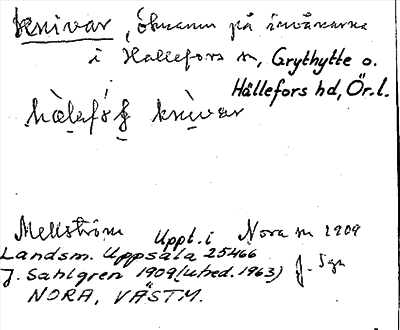 knivar, öknamn på invånarna
i Hällefors sn, Grythytte o.
Hällefors hd, Ör.l.
hä̀lafóʂ knìvar
Mellström Uppt. i Nora sn 1909
Landsm. Uppsala 25466
J. Sahlgren 1909 (utred. 1963) J. Sgn
NORA, VÄSTM.